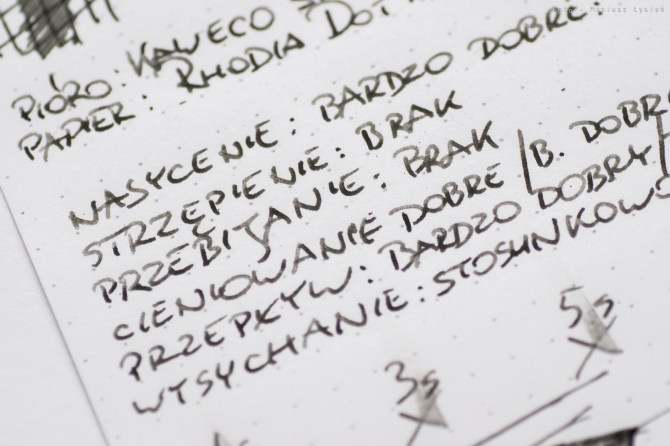 PIÓRO: KAWECO
PAPIER: RHODIA DOT
NASYCENIE: BARDZO DOBRE.
STRZĘPIENIE: BRAK
PRZEBIJANIE: BRAK
CIENIOWANIE DOBRE | B. DOBRE
PRZEPŁYW: BARDZO DOBRY
WYSYCHANIE: STOSUNKOWO
3s
5s